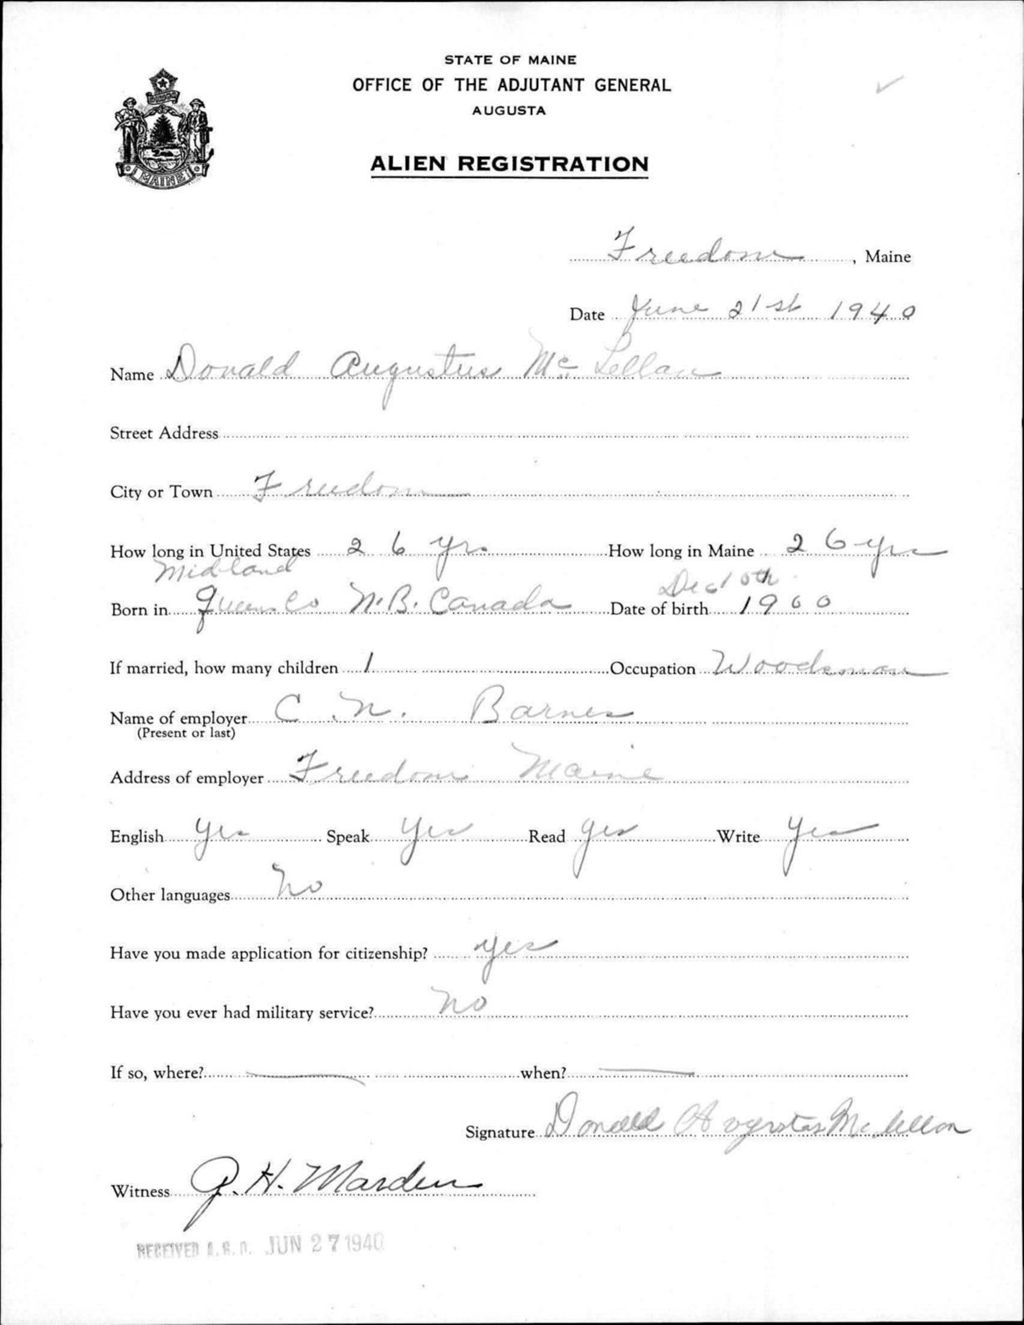 STATE OF MAINE
OFFICE OF THE ADJUTANT GENERAL
AUGUSTA
ALIEN REGISTRATION
MAINE
Freedom, Maine
Date June 21st 1940
Name Donald Augustus Mc Lellan
Street Address
City or Town Freedom
How long in United States 26 yrs. How long in Maine 26 yrs
Midland Dec 10th
Born in Queens Co N.B. Canada Date of birth 1900
If married, how many children 1 Occupation Woodsman
Name of employer C. N. Barnes
(Present or last)
Address of employer Freedom Maine
English Yes Speak Yes Read yes Write Yes
Other languages No
Have you made application for citizenship? yes
Have you ever had military service? No
If so, where? when?
Signature Donald Augustas Mc lellan
Witness H. Marden
RECEIVED A.G.O. JUN 27 1940